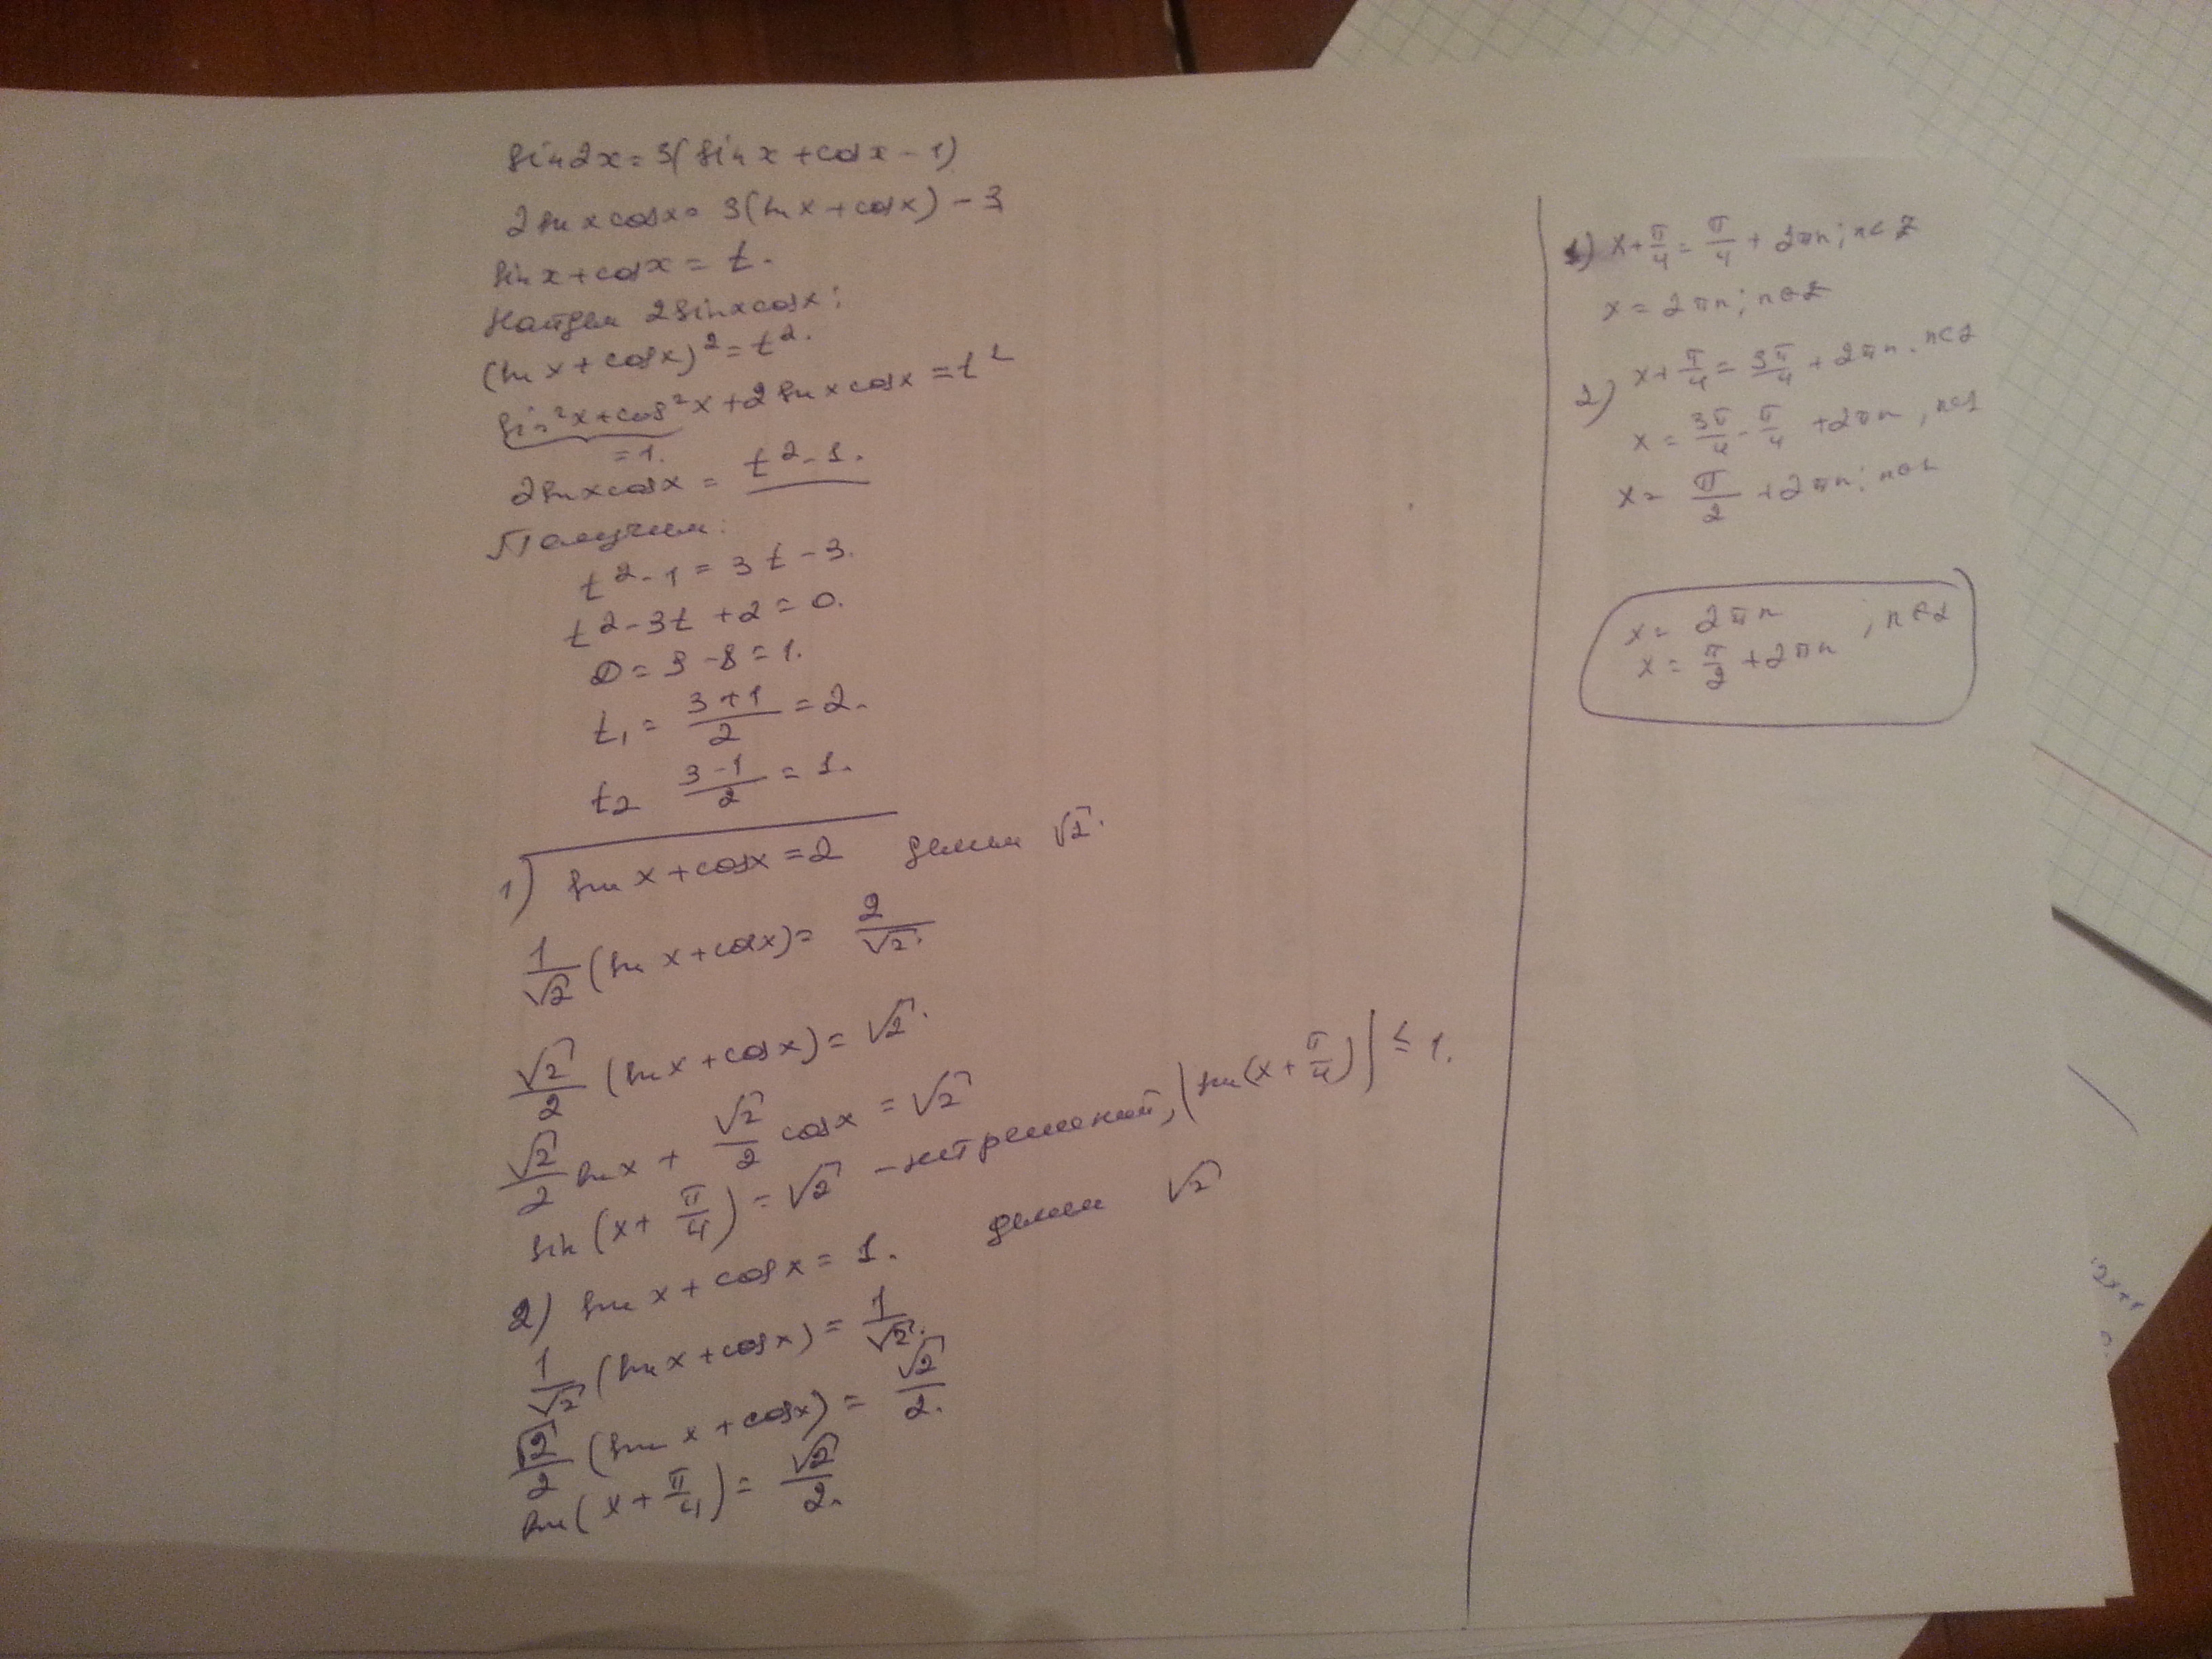 sin2x=3(sin x+cosx-1)
2sin x cosx= 3(sin x+cosx)-3
sin x+cosx=t.
Найдем 2sinxcosx:
(sin x+cosx)²=t².
sin²x+cos²x+2sin x cosx=t²
=1.
2sinxcosx = t²-1.
Получим:
t²-1=3t-3.
t²-3t+2=0.
D=9-8=1.
t₁= (3+1)/2 =2.
t₂ (3-1)/2 =1.
1) sin x+cosx=2 делим √2.
1/√2 (sin x+cosx)= 2/√2.
√2/2 (sin x+cosx)=√2.
√2/2 sin x + √2/2 cosx=√2
sin(x+ π/4)=√2 -нет решений, |sin(x+π/4)|≤1.
2) sin x+cosx=1. делим √2
1/√2 (sin x+cosx)= 1/√2.
√2/2 (sin x+cosx)= √2/2.
sin(x+π/4)= √2/2.
1) x+π/4= π/4 + 2πn; n∈Z
x= 2πn; n∈Z
2) x+π/4= 3π/4 +2πn. n∈Z
x= 3π/4 - π/4 +2πn, n∈Z
x= π/2 +2πn; n∈Z
x= 2πn
x= π/2 +2πn ; n∈Z
2x+